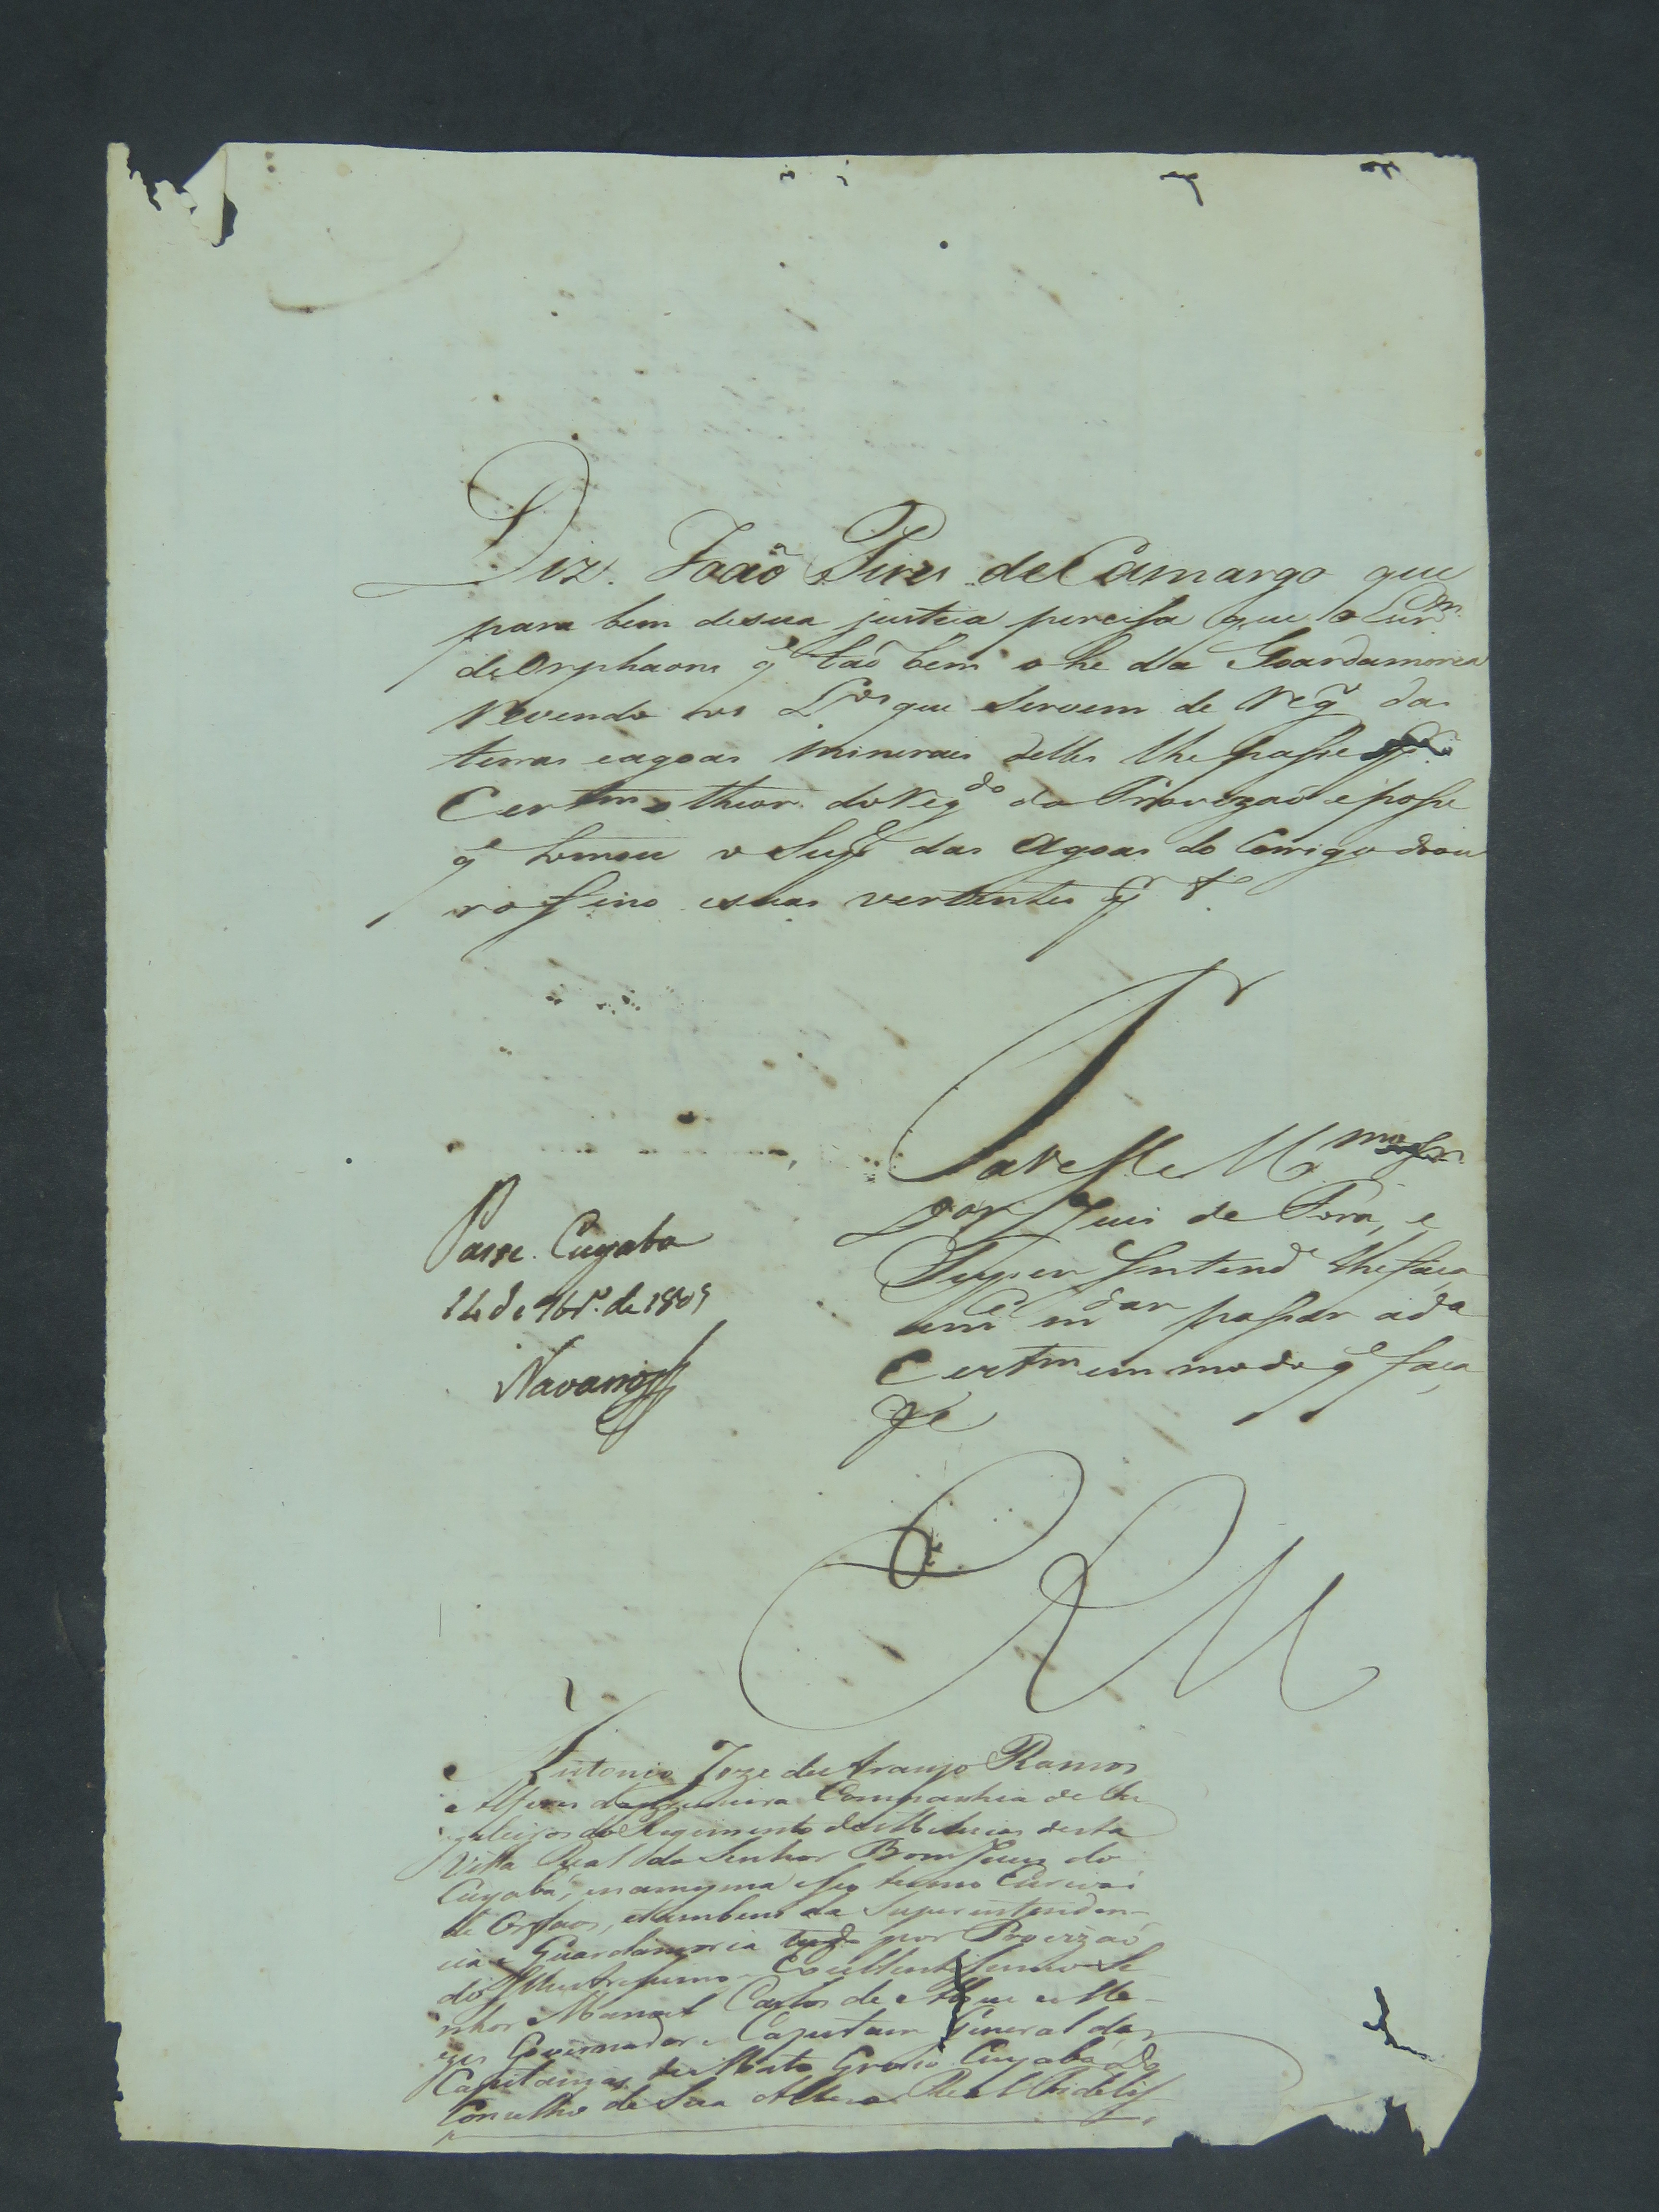 Diz João Pires de Camargo que
para bem de sua justiça percisa que o
de Orphaons q̃ taõ bem o he da Goardamoria
revendo os L.os que servem de Reg.o das
terras eagoas minerais delles lhe passe
Certam o theor do Reg.do da Provizaõ eposse
q̃ tomou o Sup.e das Agoas do Corrigo doou
ro fino esuas vertentes
P. a V. S.a
D.or Juis de Fora, e
Super Intend.e lhe faça
m.dar passar ad.a
Certam em modo q̃ faça
fe
E R M
Passe. Cuyaba
14 de 9br.o de 1809
Navarro
Antonio Joze de Araujo Ramos
Alferes da primeira Companhia de
do Regimento de Milicias desta
Villa Real do Senhor Bom Jesus do
Cuyabá, enamesma eseu termo Escrivaõ
de Orfaos, etambem da Superintenden-
cia e Guardamoria tudo por Provizaõ
do Illustrissimo Excellentissimo Se
nhor Manoel Carlos de Abreu e Me-
zes Governador e Capitam General das
Capitanias de Mato Groso Cuyabá do
Conselho de Sua Alteza Real Fideliss